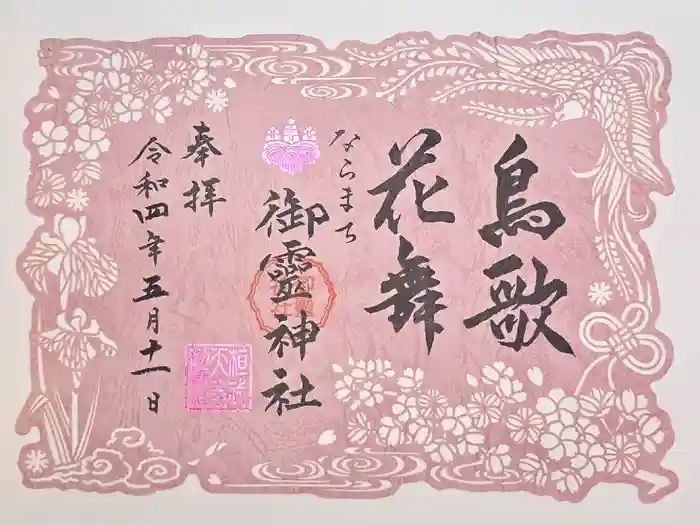 鳥歌
花舞
ならまち
御靈神社
奉拝
令和四年五月十一日